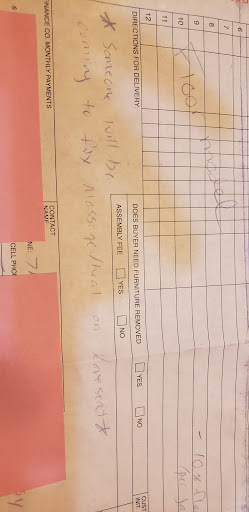 6
7
8
9
10
11
12
Floor model
DIRECTIONS FOR DELIVERY:
DOES BUYER NEED FURNITURE REMOVED YES NO
CUST INIT
ASSEMBLY FEE YES NO
* Someone will be
coming to fix massage/heat on loveseat *
FINANCE CO. MONTHLY PAYMENTS
CONTACT
NAME
NE:
CELL PHO